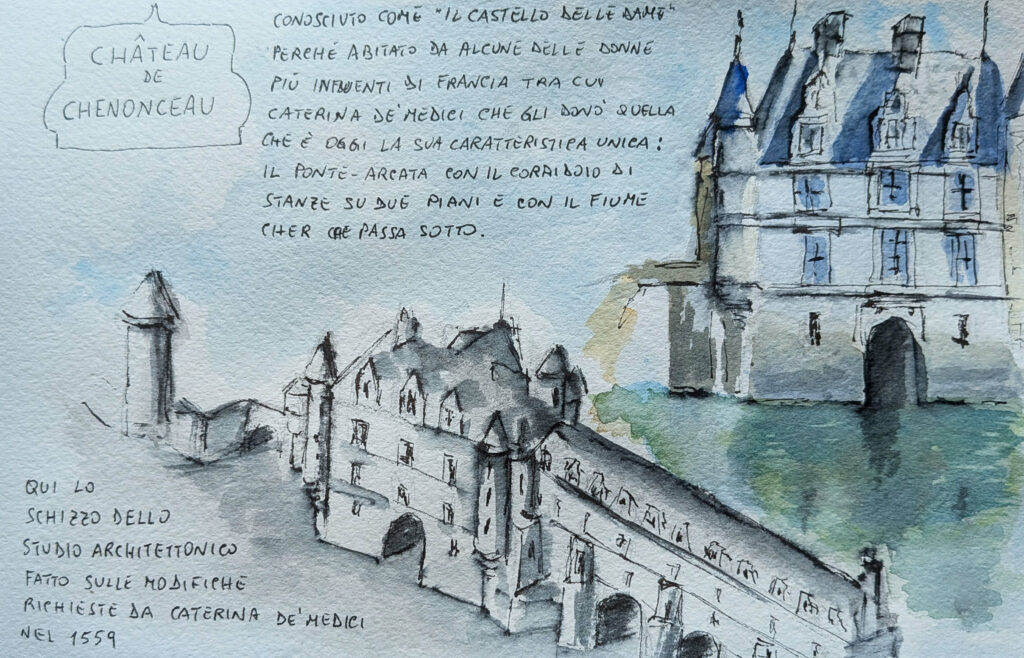 CHÂTEAU
DE
CHENONCEAU
CONOSCIUTO COME "IL CASTELLO DELLE DAME"
PERCHÉ ABITATO DA ALCUNE DELLE DONNE
PIÙ INFLUENTI DI FRANCIA TRA CUI
CATERINA DE' MEDICI CHE GLI DONÒ QUELLA
CHE È OGGI LA SUA CARATTERISTICA UNICA:
IL PONTE-ARCATA CON IL CORRIDOIO DI
STANZE SU DUE PIANI E CON IL FIUME
CHER CHE PASSA SOTTO.
QUI LO
SCHIZZO DELLO
STUDIO ARCHITETTONICO
FATTO SULLE MODIFICHE
RICHIESTE DA CATERINA DE' MEDICI
NEL 1559